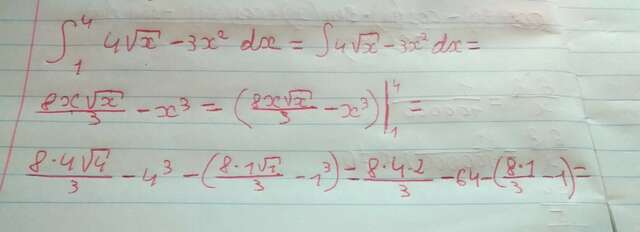 ∫₁⁴ 4√x − 3x² dx = ∫4√x − 3x² dx =
8x√x/3 − x³ = (8x√x/3 − x³)|₁⁴ =
8·4√4/3 − 4³ − (8·1√1/3 − 1³) = 8·4·2/3 − 64 − (8·1/3 − 1) =